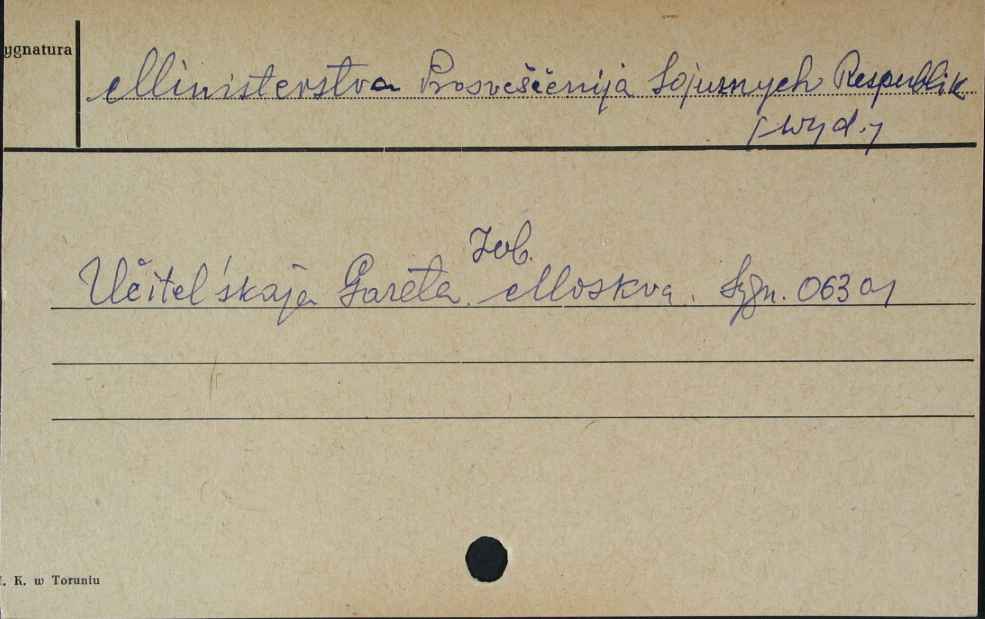 ygnatura
Ministerstva Prosveščenija Sojuznych Respublik
[wyd.]
Zob.
Učitel'skaja Gazeta. Moskva. Sygn. 06301
I. K. w Toruniu